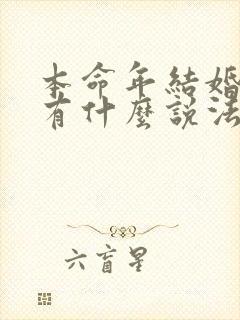 本命年結婚
有什麼說法
六盲星